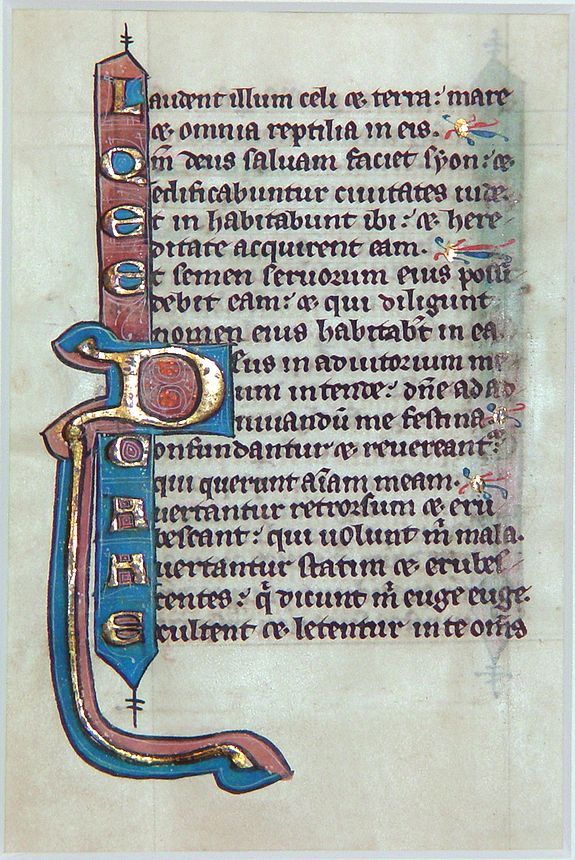 Laudent illum celi & terra: mare
& omnia reptilia in eis.
Qm̄ deus saluam faciet syon: &
edificabuntur ciuitates iude.
Et in habitabunt ibi: & here
ditate acquirent eam.
Et semen seruorum eius possi
debit eam: & qui diligunt
nomen eius habitab̄t in ea
Deus in adiutorium me
um intende: dn̄e ad ad
iuuandū me festina.
Confundantur & reuereant᷑
qui querunt aīam meam.
Auertantur retrorsum & eru
bescant: qui uolunt m̄ mala.
Auertantur statim & erubes
centes: q̄ dicunt m̄ euge euge.
Exultent & letentur in te om̄s